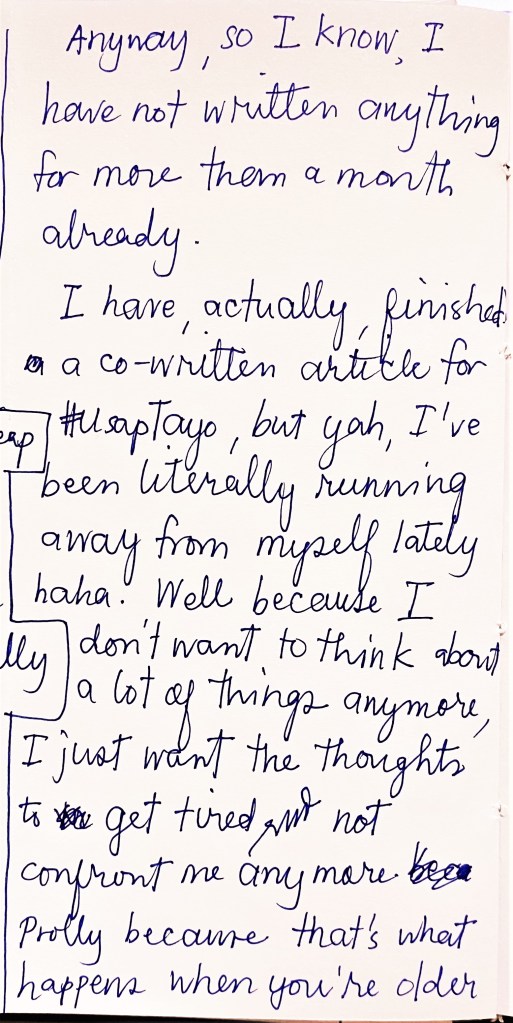 Anyway, so I know, I
have not written anything
for more them a month
already.
I have, actually, finished
a co-written article for
#UsapTayo, but yah, I've
been literally running
away from myself lately
haha. Well because I
don't want to think about
a lot of things anymore,
I just want the thoughts
to get tired, not
confront me anymore
Prolly because that's what
happens when you're older
eap
lly